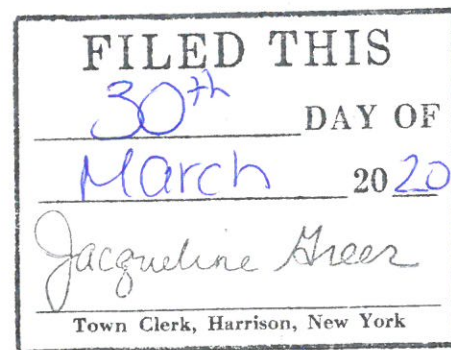 FILED THIS
30th DAY OF
March 2020
Jacqueline Greer
Town Clerk, Harrison, New York